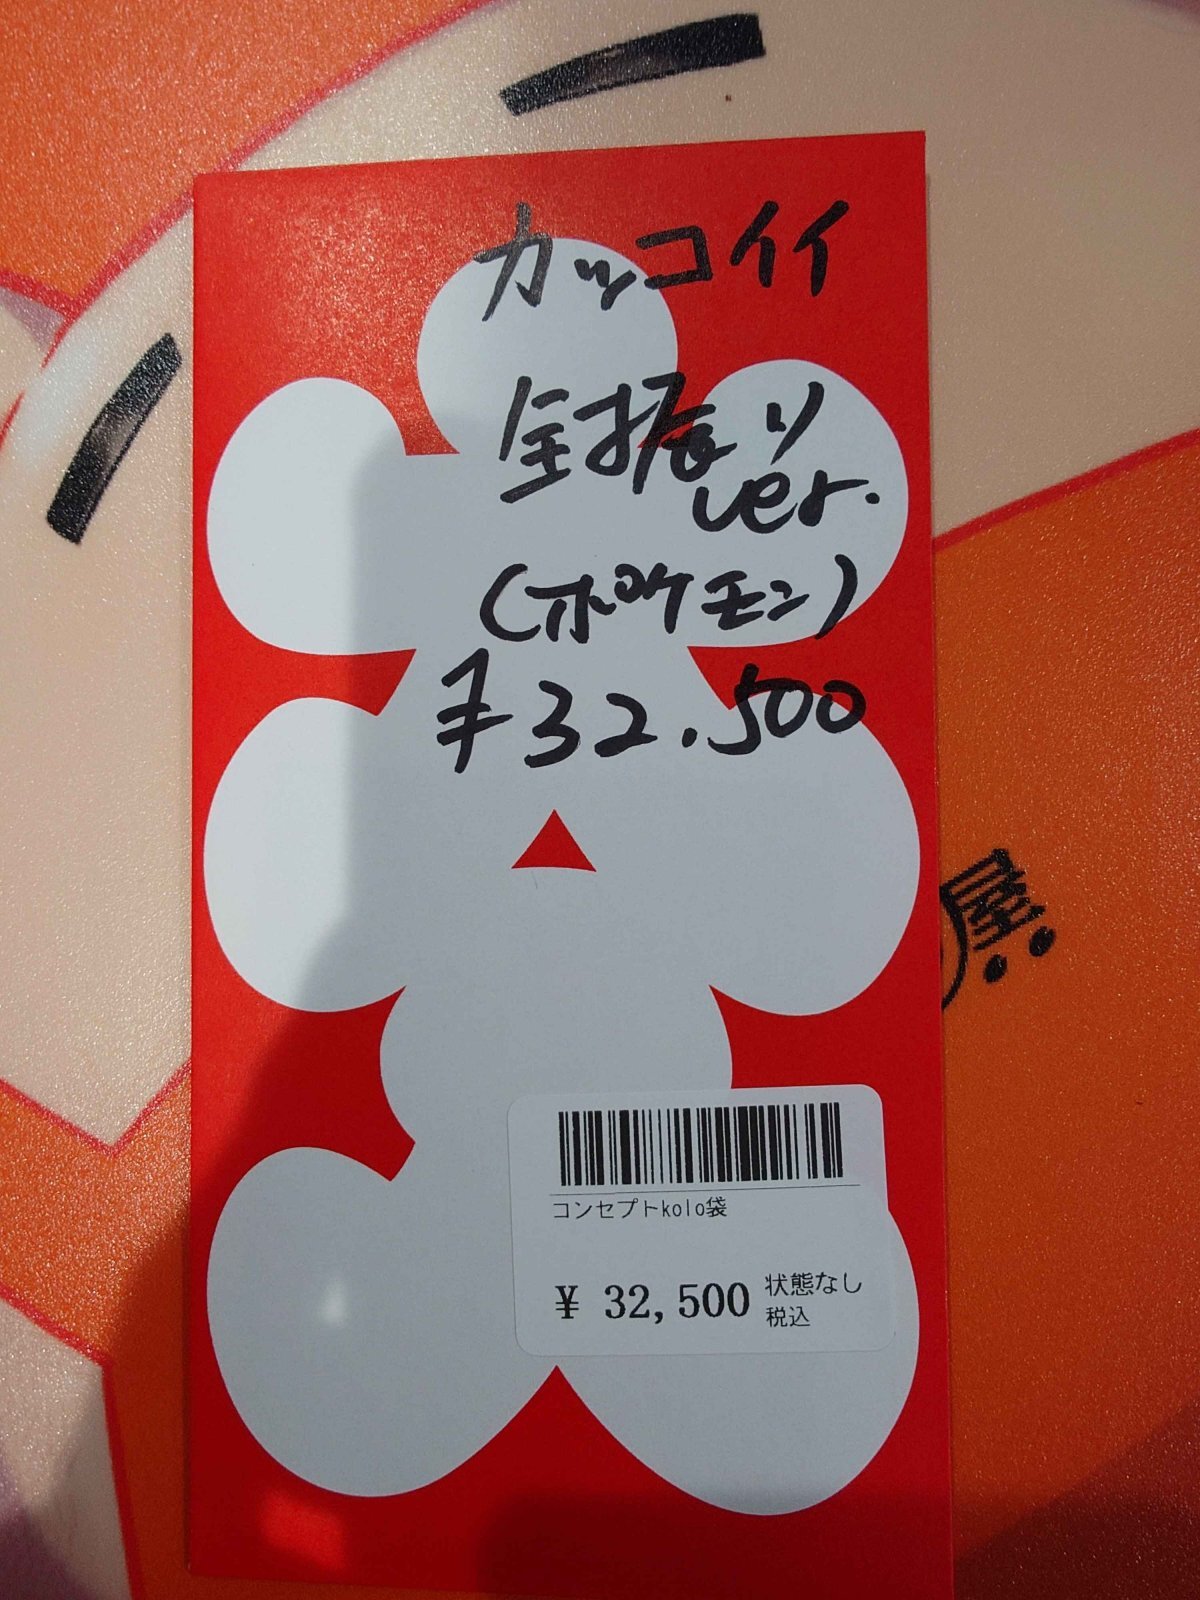 カッコイイ
全振り
ver.
(ポケモン)
¥32.500
屋
コンセプトkolo袋
¥ 32,500 状態なし
税込